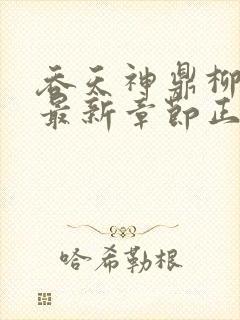 吞天神鼎柳
最新章节正
哈希勒根